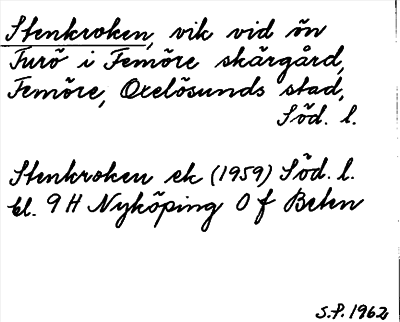 Stenkroken, vik vid ön
Furö i Femöre skärgård,
Femöre, Oxelösunds stad,
Söd. l.
Stenkroken ek (1959) Söd. l.
bl. 9 H Nyköping O f Beten
S.P. 1962